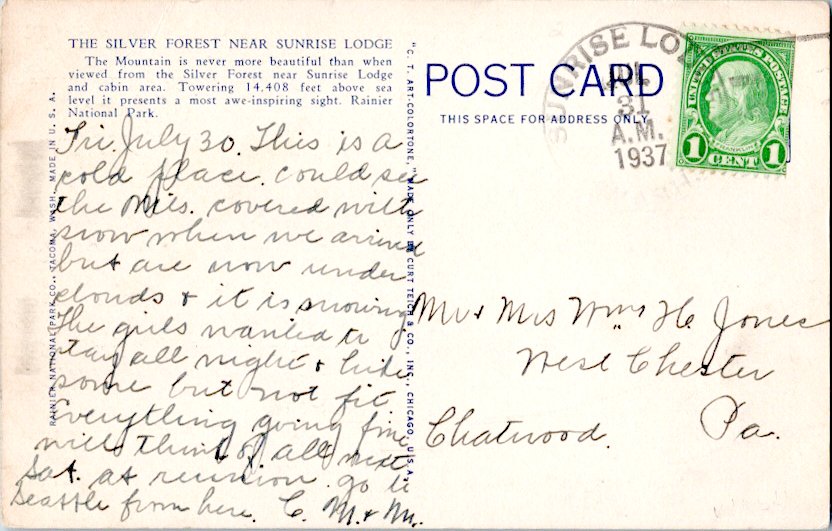 THE SILVER FOREST NEAR SUNRISE LODGE
The Mountain is never more beautiful than when
viewed from the Silver Forest near Sunrise Lodge
and cabin area. Towering 14,408 feet above sea
level it presents a most awe-inspiring sight. Rainier
National Park.
Fri. July 30. This is a
cold place. could see
the Mts. covered with
snow when we arrived
but are now under
clouds & it is snowing
The girls wanted to
stay all night & hike
some but not fit.
Everything going fine
will think of all next
Sat. at reunion. go to
Seattle from here. C. M. & M.
RAINIER NATIONAL PARK CO., TACOMA, WASH. MADE IN U. S. A.
"C. T. ART-COLORTONE," MADE ONLY BY CURT TEICH & CO., INC., CHICAGO, U.S.A.
POST CARD
THIS SPACE FOR ADDRESS ONLY
SUNRISE LO
JUL
31
A.M.
1937
UNITED STATES POSTAGE
FRANKLIN
1 CENT 1
Mr & Mrs Wm. H. Jones
West Chester
Chatwood. Pa.